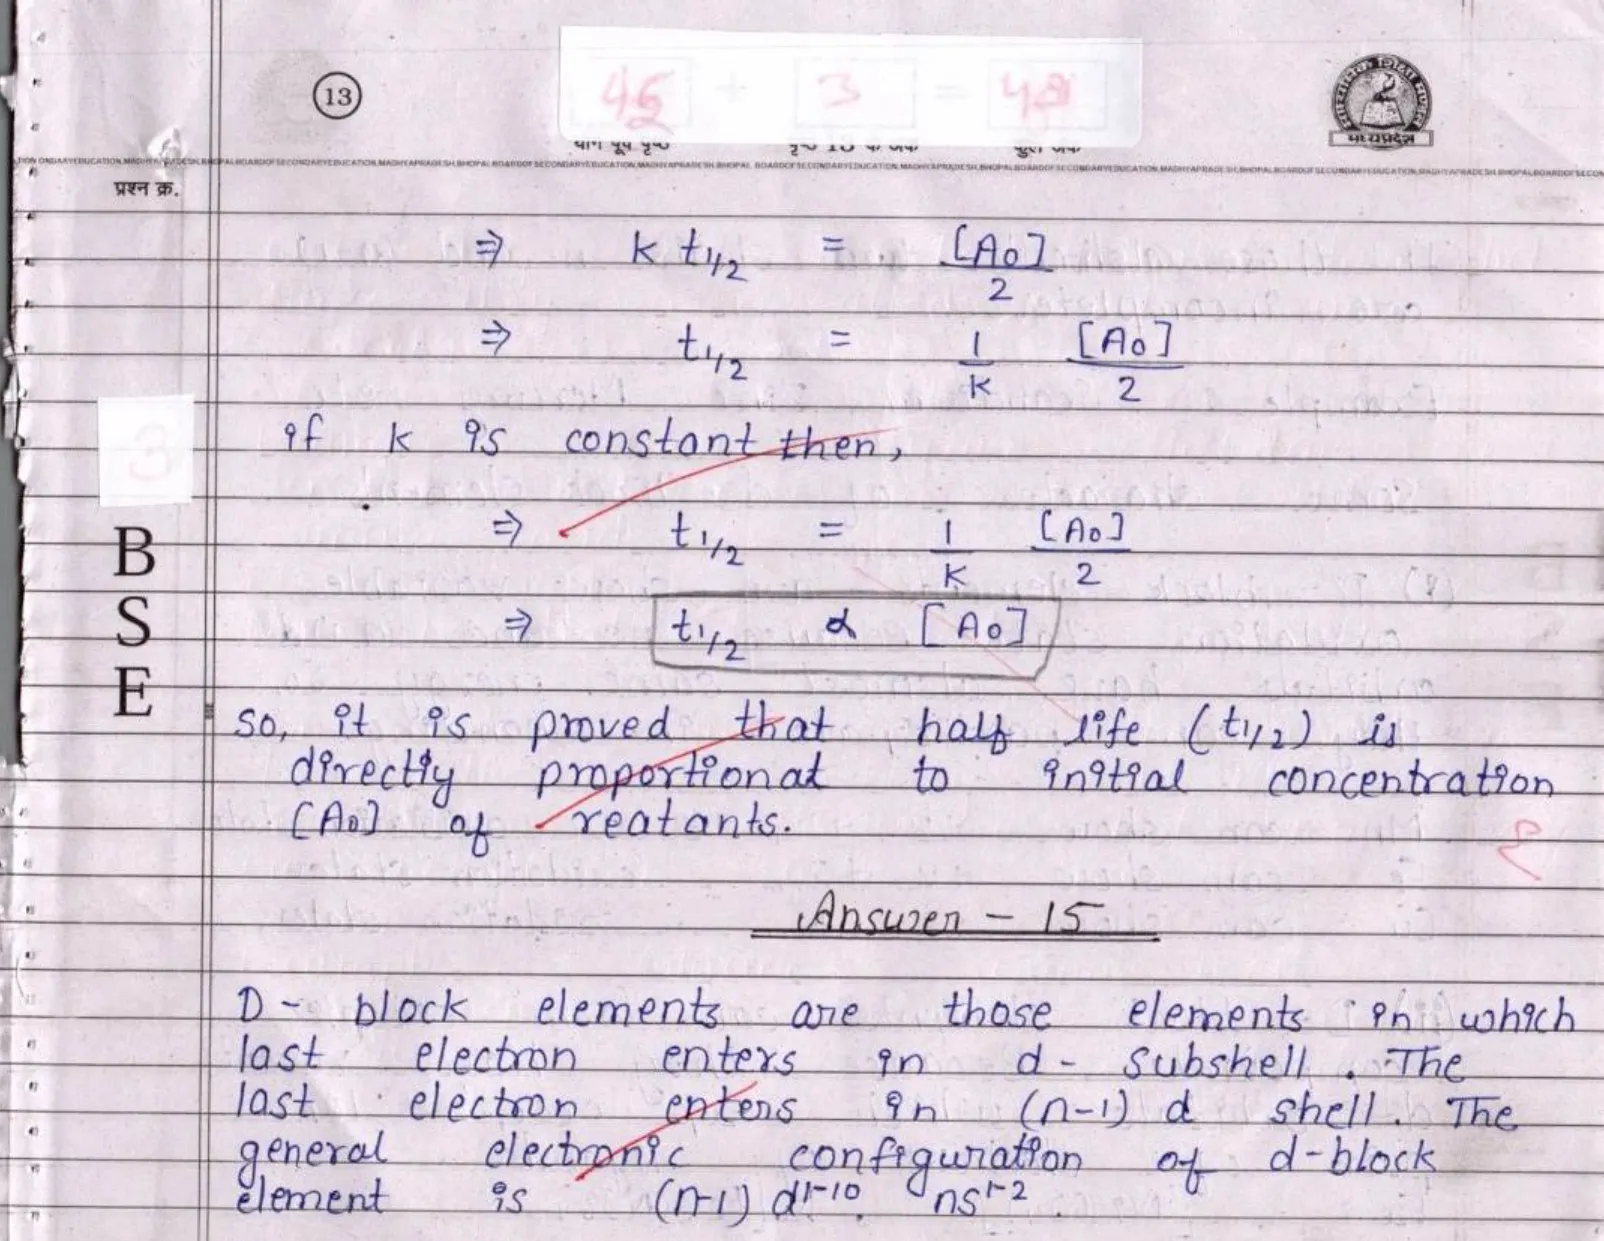 13
45 + 3 = 48
योग पूर्व पृष्ठ पृष्ठ 13 के अंक कुल अंक
मध्यप्रदेश
BOARD OF SECONDARY EDUCATION, MADHYA PRADESH, BHOPAL
प्रश्न क्र.
⇒ k t1/2 = [A0]/2
⇒ t1/2 = 1/k [A0]/2
3
if k is constant then,
⇒ t1/2 = 1/k [A0]/2
B
S
E
⇒ t1/2 α [A0]
so, it is proved that half life (t1/2) is
directly proportional to initial concentration
[A0] of reatants.
Answer - 15
D - block elements are those elements in which
last electron enters in d - subshell. The
last electron enters in (n-1) d shell. The
general electronic configuration of d-block
element is (n-1) d1-10 ns1-2.